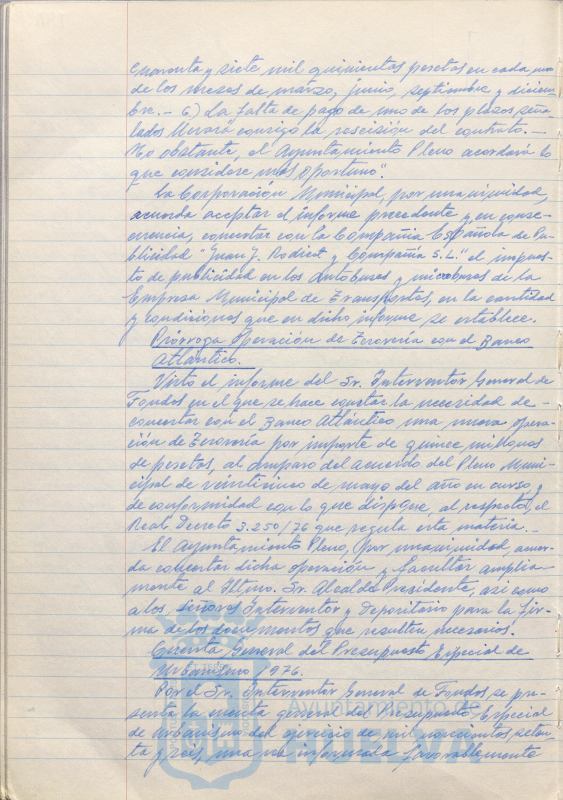 cuarenta y siete mil quinientas pesetas en cada uno
de los meses de marzo, junio, septiembre y diciem-
bre.- 6) La falta de pago de uno de los plazos seña-
lados llevará consigo la rescisión del contrato.-
No obstante, el Ayuntamiento Pleno acordará lo
que considere más oportuno".
La Corporación Municipal, por unanimidad,
acuerda aceptar el informe precedente y en conse-
cuencia, concertar con la Compañía Española de Pu-
blicidad "Juan J. Rodiest y Compañía S.L." el impues-
to de publicidad en los autobuses y microbuses de la
Empresa Municipal de Transportes, en la cantidad
y condiciones que en dicho informe se establece.
Prórroga Operación de Tesorería con el Banco
Atlántico.
Visto el informe del Sr. Interventor General de
Fondos en el que se hace constar la necesidad de
concertar con el Banco Atlántico una nueva opera-
ción de Tesorería por importe de quince millones
de pesetas, al amparo del acuerdo del Pleno Muni-
cipal de veinticinco de mayo del año en curso y
de conformidad con lo que dispone, al respecto, el
Real Decreto 3.250/76 que regula esta materia.-
El Ayuntamiento Pleno, por unanimidad, acuer-
da concertar dicha operación y facultar amplia-
mente al Iltmo. Sr. Alcalde Presidente, así como
a los señores Interventor y Depositario para la fir-
ma de los documentos que resulten necesarios.
Cuenta General del Presupuesto Especial de
Urbanismo 1976.
Por el Sr. Interventor General de Fondos se pre-
senta la cuenta general del Presupuesto Especial
de Urbanismo del ejercicio de mil novecientos seten-
ta y seis, una vez informada favorablemente
Ayuntamiento de
HUELVA